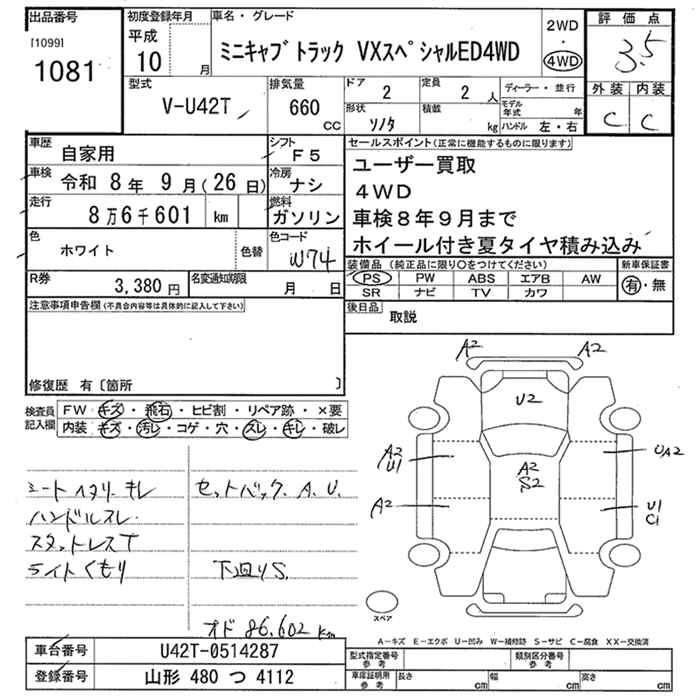 出品番号
[1099]
1081
初度登録年月
平成
10 月
車名・グレード
ミニキャブトラック VXスペシャルED4WD
2WD
・
4WD
評価点
3.5
外装 内装
C C
型式
V-U42T
排気量
660
CC
ドア
2
定員
2 人
形状
ソノタ
積載
kg
ディーラー・並行
モデル年式 年
ハンドル 左・右
車歴
自家用
シフト
F5
車検
令和 8年 9月(26日)
冷房
ナシ
走行
8万6千601 km
燃料
ガソリン
色
ホワイト
色替
色コード
W74
R券
3,380円
名変通知期限
月 日
セールスポイント(正常に機能するものに限ります)
ユーザー買取
4WD
車検8年9月まで
ホイール付き夏タイヤ積み込み
装備品(純正品に限り○をつけてください)
PS PW ABS エアB AW
SR ナビ TV カワ
新車保証書
有・無
後日品
取説
注意事項申告欄(不具合内容等は具体的に記入して下さい)
修復歴 有〔箇所 〕
検査員記入欄
FW キズ・飛石・ヒビ割・リペア跡・×要
内装 キズ・汚レ・コゲ・穴・スレ・キレ・破レ
シートヘタリ・キレ
ハンドルスレ・
スタットレスT
ライトくもり
セットバック. A. U.
下廻りS.
オド 86,602 km
A2 A2
U2
A2
U1
A2
S2
UA2
A2
U1
C1
スペア
A-キズ E-エクボ U-凹み W-補修跡 S-サビ C-腐食 XX-交換済
車台番号
U42T-0514287
登録番号
山形 480 つ 4112
型式指定番号
参考
類別区分番号
参考
車庫証明用
参考
長さ cm
幅 cm
高さ cm